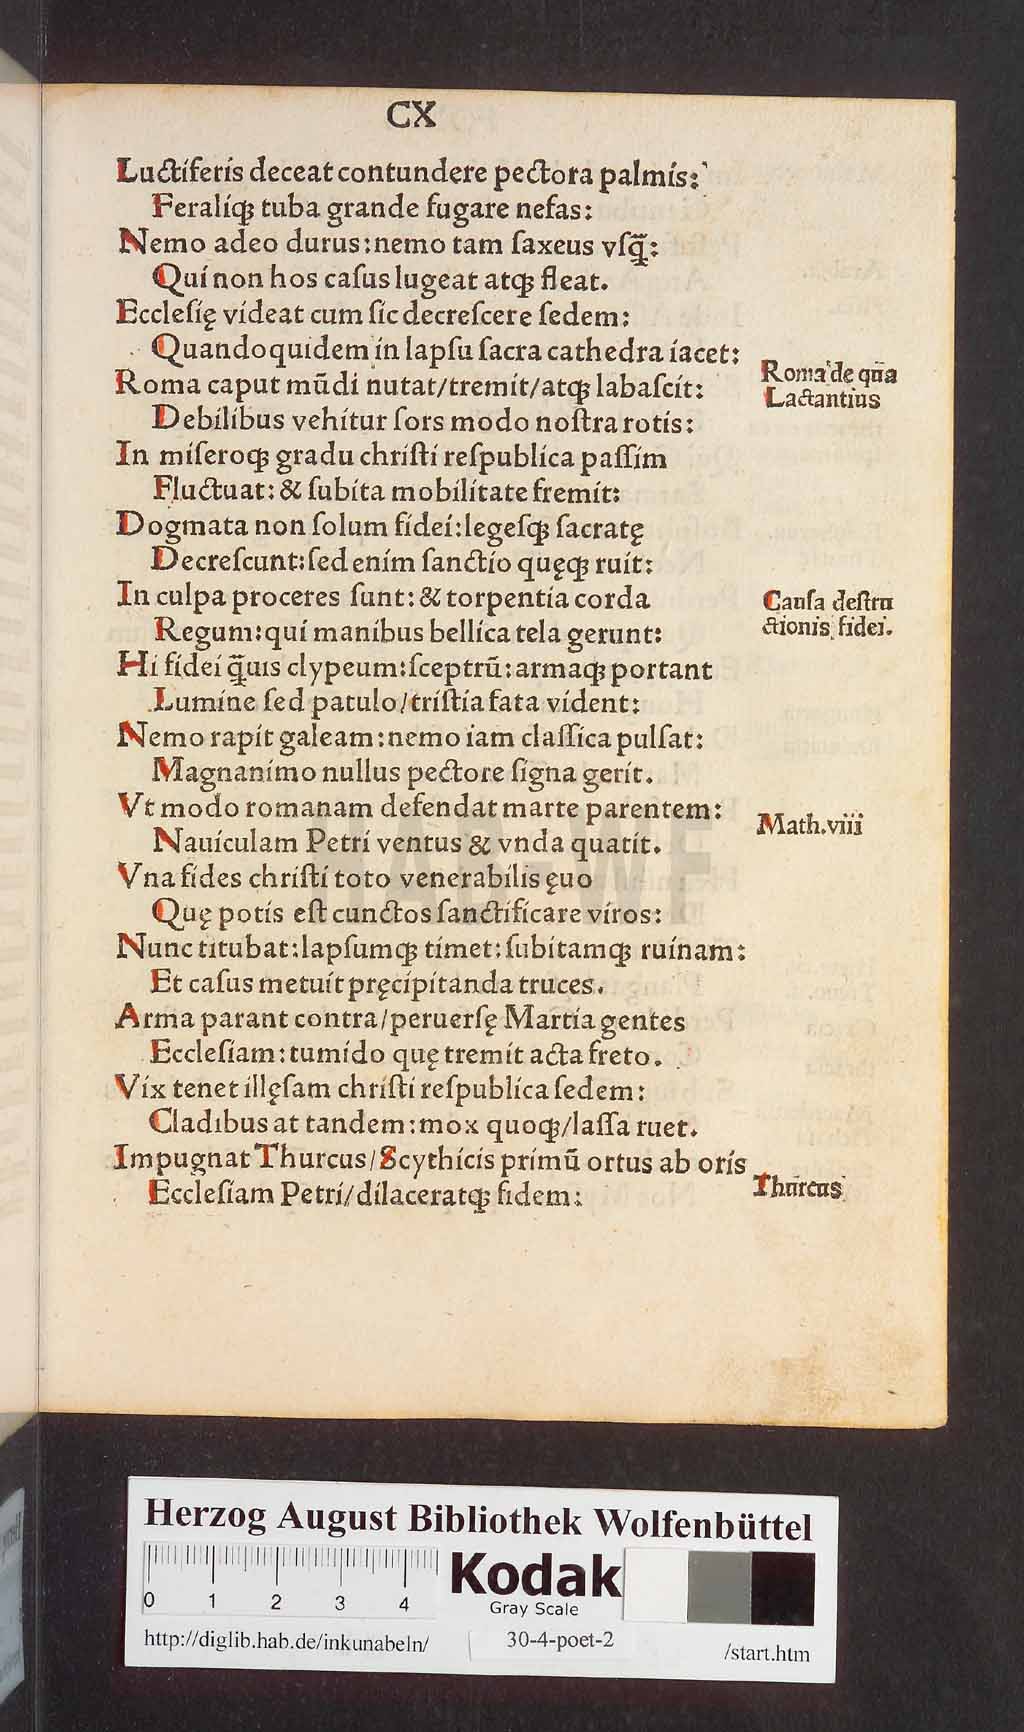 CX
Luctiferis deceat contundere pectora palmis:
Feraliqꝫ tuba grande fugare nefas:
Nemo adeo durus: nemo tam ſaxeus vſq̄ꝫ:
Qui non hos caſus lugeat atqꝫ fleat.
Eccleſię videat cum ſic decreſcere ſedem:
Quandoquidem in lapſu ſacra cathedra iacet:
Roma caput mūdi nutat/tremit/atqꝫ labaſcit:
Roma de qua
Lactantius
Debilibus vehitur ſors modo noſtra rotis:
In miſeroqꝫ gradu chriſti reſpublica paſſim
Fluctuat: & ſubita mobilitate fremit:
Dogmata non ſolum fidei: legeſqꝫ ſacratę
Decreſcunt: ſed enim ſanctio quęqꝫ ruit:
In culpa proceres ſunt: & torpentia corda
Cauſa deſtru
ctionis fidei.
Regum: qui manibus bellica tela gerunt:
Hi fidei q̄uis clypeum: ſceptrū: armaqꝫ portant
Lumine ſed patulo/triſtia fata vident:
Nemo rapit galeam: nemo iam claſſica pulſat:
Magnanimo nullus pectore ſigna gerit.
Vt modo romanam defendat marte parentem:
Math.viii
Nauiculam Petri ventus & vnda quatit.
Vna fides chriſti toto venerabilis ęuo
Quę potis eſt cunctos ſanctificare viros:
Nunc titubat: lapſumqꝫ timet: ſubitamqꝫ ruinam:
Et caſus metuit pręcipitanda truces.
Arma parant contra/peruerſę Martia gentes
Eccleſiam: tumido quę tremit acta freto.
Vix tenet illęſam chriſti reſpublica ſedem:
Cladibus at tandem: mox quoqꝫ/laſſa ruet.
Impugnat Thurcus/Scythicis primū ortus ab oris
Thurcus
Eccleſiam Petri/dilaceratqꝫ fidem:
HAB-WF
Herzog August Bibliothek Wolfenbüttel
0 1 2 3 4
Kodak
Gray Scale
http://diglib.hab.de/inkunabeln/
30-4-poet-2
/start.htm